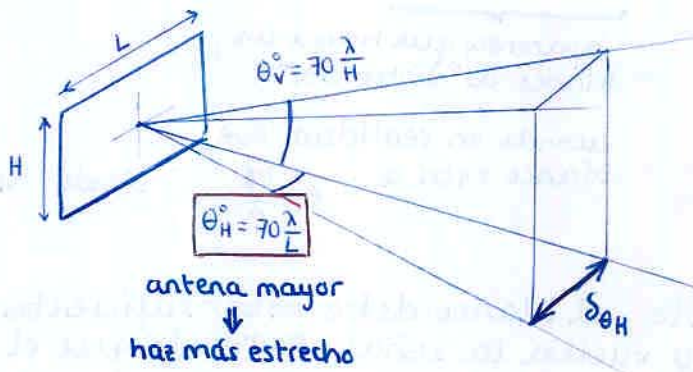 L
θ°v = 70 λ/H
H
θ°H = 70 λ/L
δθH
antena mayor
⇓
haz más estrecho